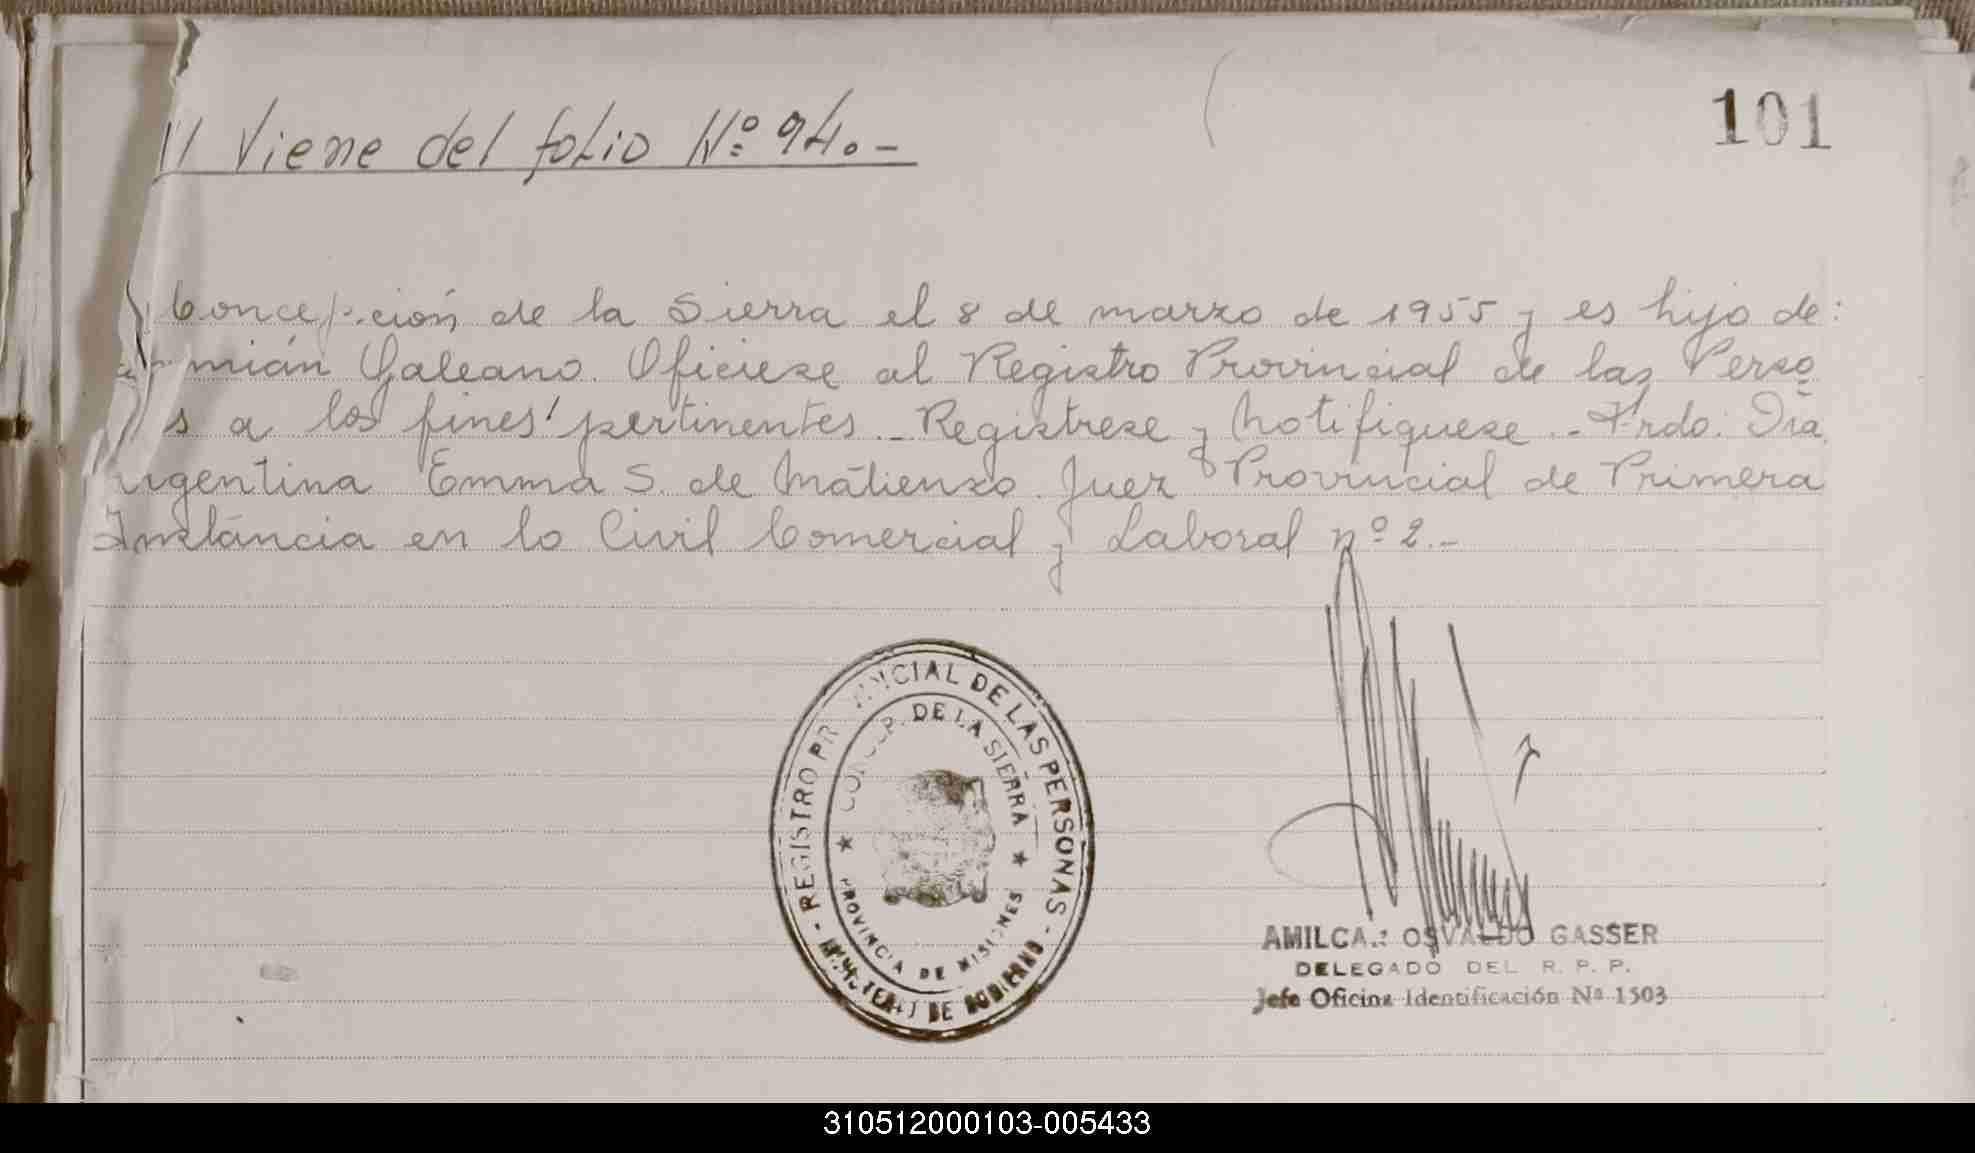 101
// Viene del folio Nº 94.-
Concepción de la Sierra el 8 de marzo de 1955 y es hijo de:
mián Galeano. Oficiese al Registro Provincial de las Perso
s a los fines pertinentes.- Registrese y Notifiquese.- Frdo. Dra
Argentina Emma S. de Matienzo. Juez Provincial de Primera
Instancia en lo Civil Comercial y Laboral nº 2.-
REGISTRO PROVINCIAL DE LAS PERSONAS
CONCEP. DE LA SIERRA
PROVINCIA DE MISIONES
MINISTERIO DE GOBIERNO
AMILCAR OSVALDO GASSER
DELEGADO DEL R. P. P.
Jefe Oficina Identificación Nº 1503
310512000103-005433